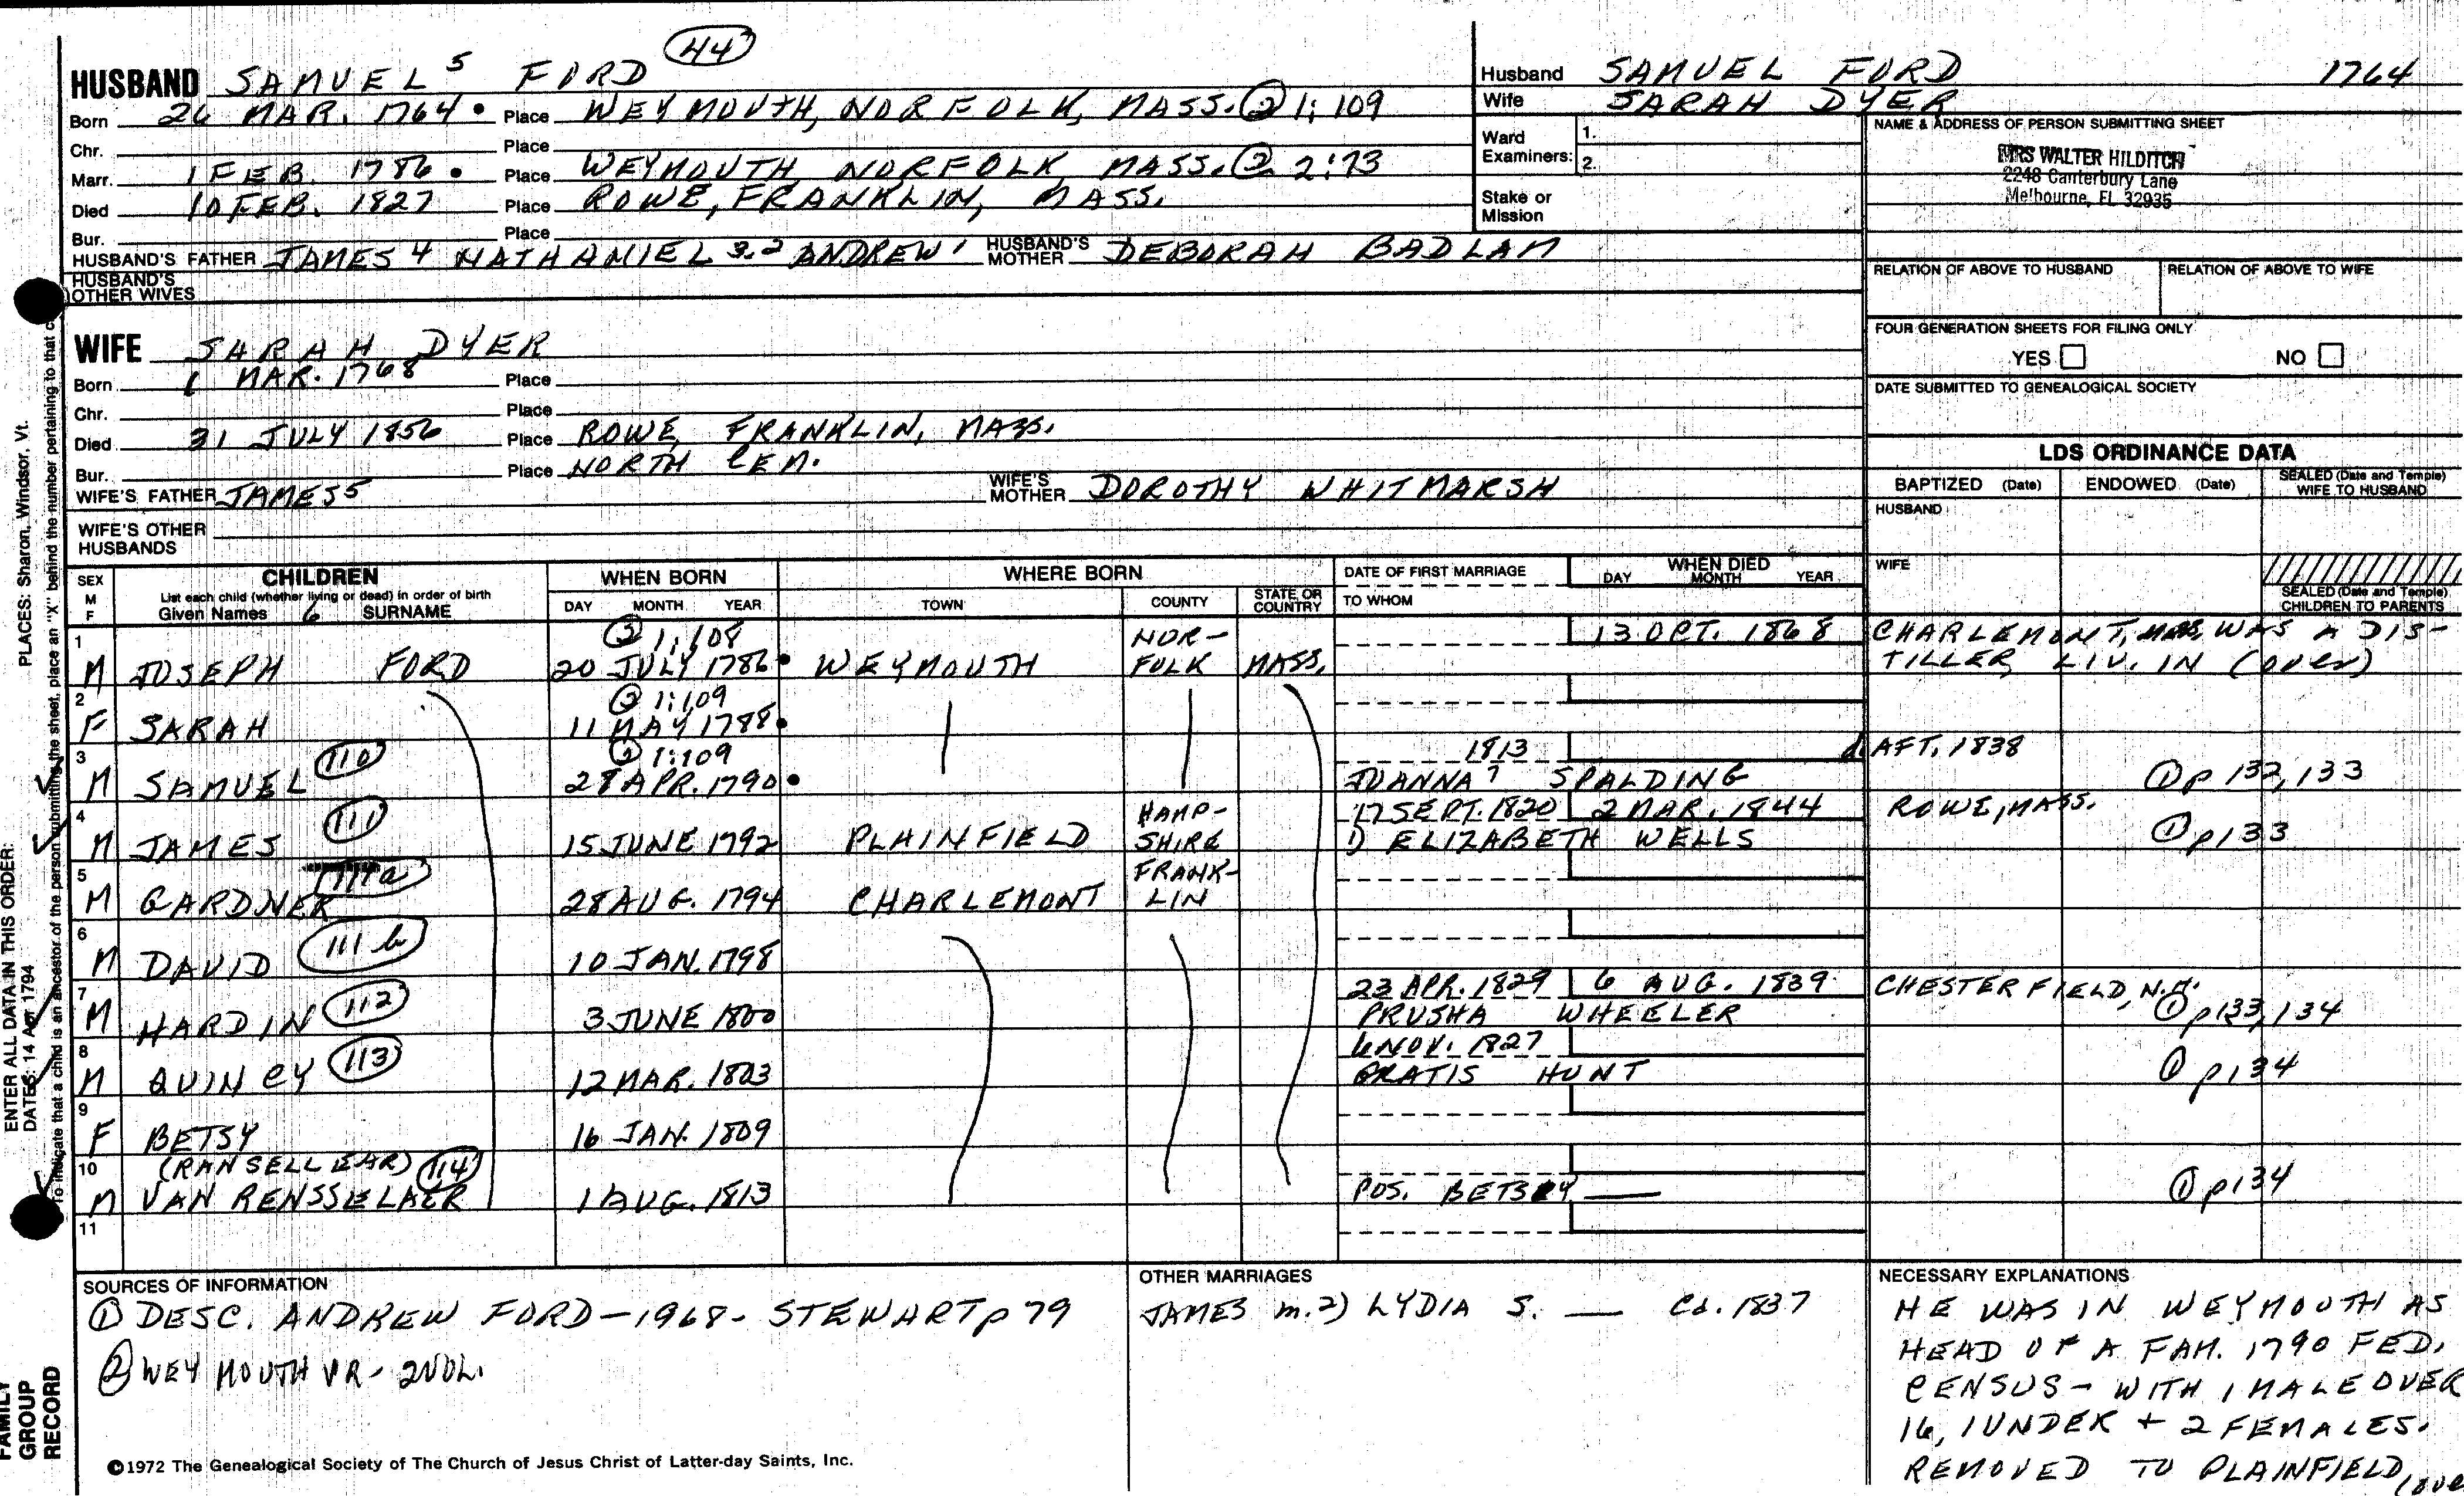 44
HUSBAND SAMUEL 5 FORD
Born 26 MAR. 1764 • Place WEYMOUTH, NORFOLK, MASS. ② 1:109
Chr. Place
Marr. 1 FEB. 1786 • Place WEYMOUTH, NORFOLK, MASS. ② 2:73
Died 10 FEB. 1827 Place ROWE, FRANKLIN, MASS.
Bur. Place
HUSBAND'S FATHER JAMES 4 NATHANIEL 3.2 ANDREW 1 HUSBAND'S MOTHER DEBORAH BADLAM
HUSBAND'S OTHER WIVES
WIFE SARAH DYER
Born 1 MAR. 1768 Place
Chr. Place
Died 31 JULY 1856 Place ROWE, FRANKLIN, MASS.
Bur. Place NORTH CEM.
WIFE'S FATHER JAMES 5 WIFE'S MOTHER DOROTHY WHITMARSH
WIFE'S OTHER HUSBANDS
Husband SAMUEL FORD 1764
Wife SARAH DYER
Ward Examiners: 1. 2.
Stake or Mission
NAME & ADDRESS OF PERSON SUBMITTING SHEET
MRS WALTER HILDITCH
2248 Canterbury Lane
Melbourne, FL 32935
RELATION OF ABOVE TO HUSBAND RELATION OF ABOVE TO WIFE
FOUR GENERATION SHEETS FOR FILING ONLY
YES NO
DATE SUBMITTED TO GENEALOGICAL SOCIETY
LDS ORDINANCE DATA
BAPTIZED (Date) ENDOWED (Date) SEALED (Date and Temple) WIFE TO HUSBAND
HUSBAND
WIFE
SEALED (Date and Temple) CHILDREN TO PARENTS
SEX M F CHILDREN WHEN BORN WHERE BORN DATE OF FIRST MARRIAGE WHEN DIED
List each child (whether living or dead) in order of birth DAY MONTH YEAR TOWN COUNTY STATE OR COUNTRY TO WHOM DAY MONTH YEAR
Given Names 6 SURNAME
1 ② 1:108 NOR- 13 OCT. 1868 CHARLEMONT, MASS, WAS A DIS-
M JOSEPH FORD 20 JULY 1786 • WEYMOUTH FOLK MASS. TILLER, LIV. IN (over)
2 ② 1:109
F SARAH 11 MAY 1788 •
3 110 ② 1:109 1813 d AFT. 1838
M SAMUEL 28 APR. 1790 • JOANNA 7 SPALDING ① p 132, 133
4 111 HAMP- 17 SEPT. 1820 2 MAR. 1844 ROWE, MASS.
M JAMES 15 JUNE 1792 PLAINFIELD SHIRE 1) ELIZABETH WELLS ① p 133
5 111a FRANK-
M GARDNER 28 AUG. 1794 CHARLEMONT LIN
6 111 b
M DAVID 10 JAN. 1798
7 112 23 APR. 1829 6 AUG. 1839 CHESTERFIELD, N.H.
M HARDIN 3 JUNE 1800 PRUSHA WHEELER ① p 133, 134
8 113 6 NOV. 1827
M QUINCY 12 MAR. 1803 GRATIS HUNT ① p 134
9
F BETSY 16 JAN. 1809
10 (RANSELLEAR) 114
M VAN RENSSELAER 1 AUG. 1813 POS. BETSEY — ① p 134
11
SOURCES OF INFORMATION
① DESC. ANDREW FORD - 1968 - STEWART p 79
② WEYMOUTH VR - 2 VOL.
OTHER MARRIAGES
JAMES m. 2) LYDIA S. — Cd. 1837
NECESSARY EXPLANATIONS
HE WAS IN WEYMOUTH AS
HEAD OF A FAM. 1790 FED.
CENSUS - WITH 1 MALE OVER
16, 1 UNDER + 2 FEMALES.
REMOVED TO PLAINFIELD,
©1972 The Genealogical Society of The Church of Jesus Christ of Latter-day Saints, Inc.
FAMILY GROUP RECORD
ENTER ALL DATA IN THIS ORDER:
DATES: 14 Apr 1794
PLACES: Sharon, Windsor, Vt.
To indicate that a child is an ancestor of the person submitting the sheet, place an "X" behind the number pertaining to that c